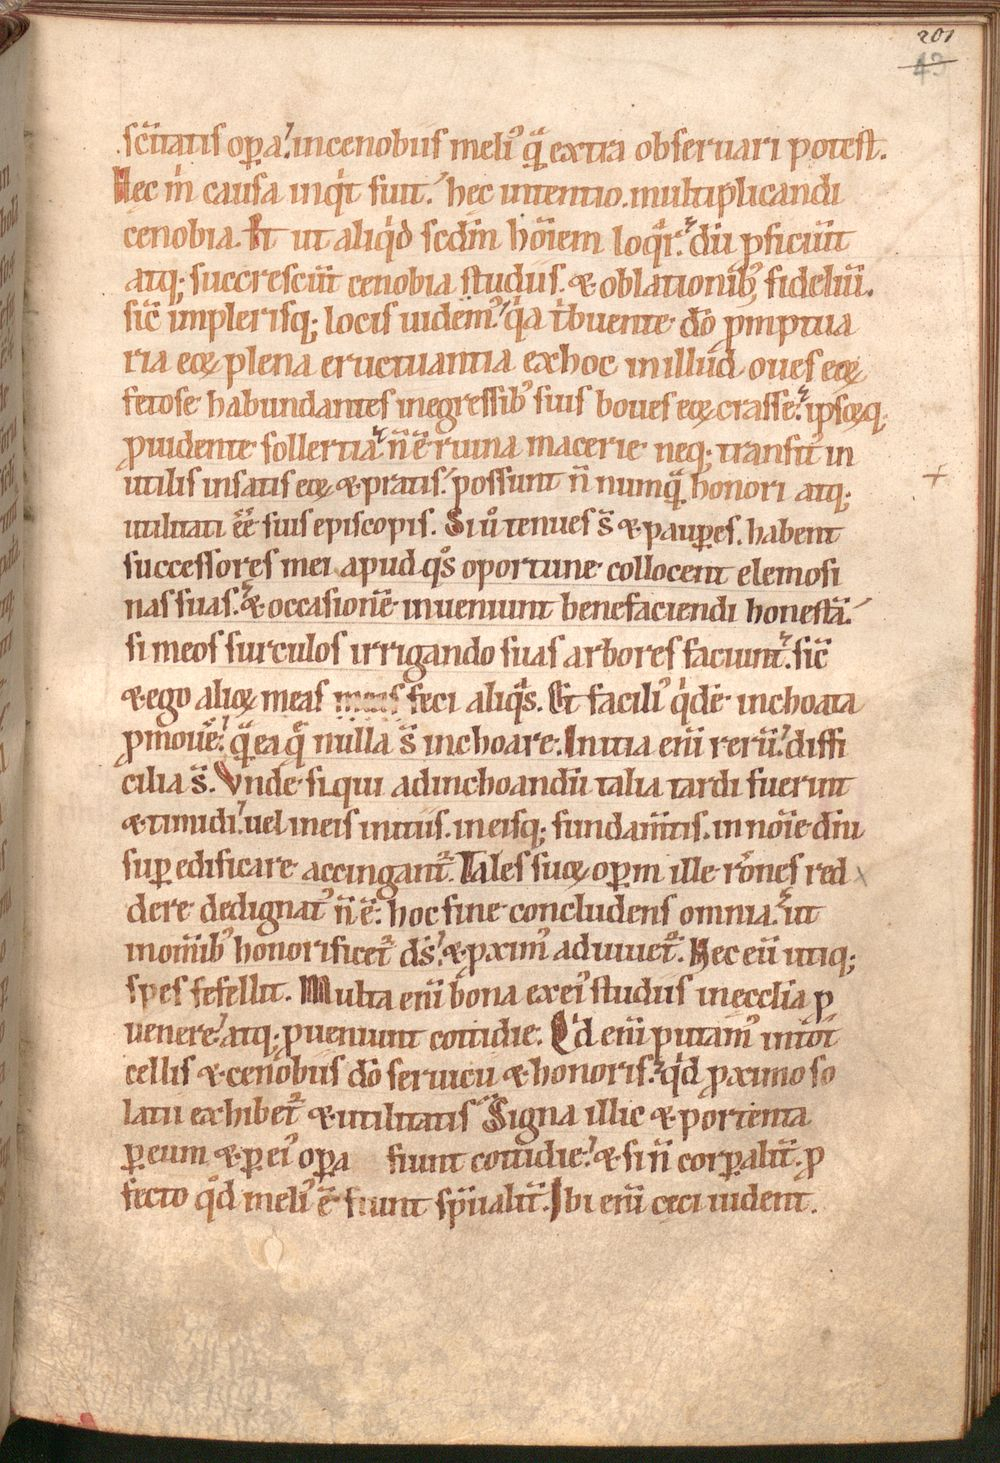 201
43
sc̄itatis oꝑa. in cenobiis meli᷒ qͣ̄ extra obseruari potest.
Hec m̄ causa inqͥt fuit. hec intentio. multiplicandi
cenobia. Et ut aliqͥd scd̄m hoīem loqͣr. dū ꝓficiūt
atq; succrescūt cenobia studiis. & oblationib᷒ fideliū.
sic̄ implerisq; locis uidem᷒. qͥa tͥbuente dō ꝓmptua
ria eoꝝ plena eructuantia ex hoc in illud oues eoꝝ
fetose habundantes in egressib᷒ suis boues eoꝝ crasse. ipsoqꝫ
ꝓuidente sollertia. n̄ ē ruina macerie neq; transit᷒ in
utilis in satis eoꝝ & pratis. possunt n̄ numqͣ̄ honori atq;
utilitati eē̄ suis episcopis. Si ů tenues s̄ & pauꝑes. habent
successores mei apud qͦs oportune collocent elemosi
nas suas. & occasionē inueniunt benefaciendi honestā.
si meos surculos irrigando suas arbores faciunt. sic̄
& ego alioꝝ meas feci aliqͣs. Et facili᷒ qͥdē inchoata
ꝓmouē̄t. qͣ̄ ea qͤ nulla s̄ inchoare. Initia enī rerū. diffi
cilia s̄. Vnde si qui ad inchoandū talia tardi fuerint
& timidi. uel in eis initiis. in eisq; fundam̄tis. in noīe dn̄i
suꝑedificare accingant᷑. Tales suoꝝ oꝑum ille rōnes red
dere dedignat᷒ n̄ ē. hoc fine concludens omnia. ut
in om̄ib᷒ honorificet᷑ ds̄. & ꝓxim᷒ adiuuet᷑. Nec eū utiq;
spes fefellit. Multa enī bona ex ei᷒ studiis in eccl̄ia ꝓ
uenere. atq; ꝓueniunt cottidie. Qͥd enī putam᷒ in tot
cellis & cenobiis dō seruicii & honoris. qͥd ꝓximo so
latii exhibet᷑ & utilitatis. Signa illic & portenta
ꝑ eum & ꝑ ei᷒ oꝑa fiunt cottidie. & si n̄ corꝑalit̄. ꝓ
fecto qͦd meli᷒ ē fiunt sp̄ualit̄. Ibi enī ceci uident.